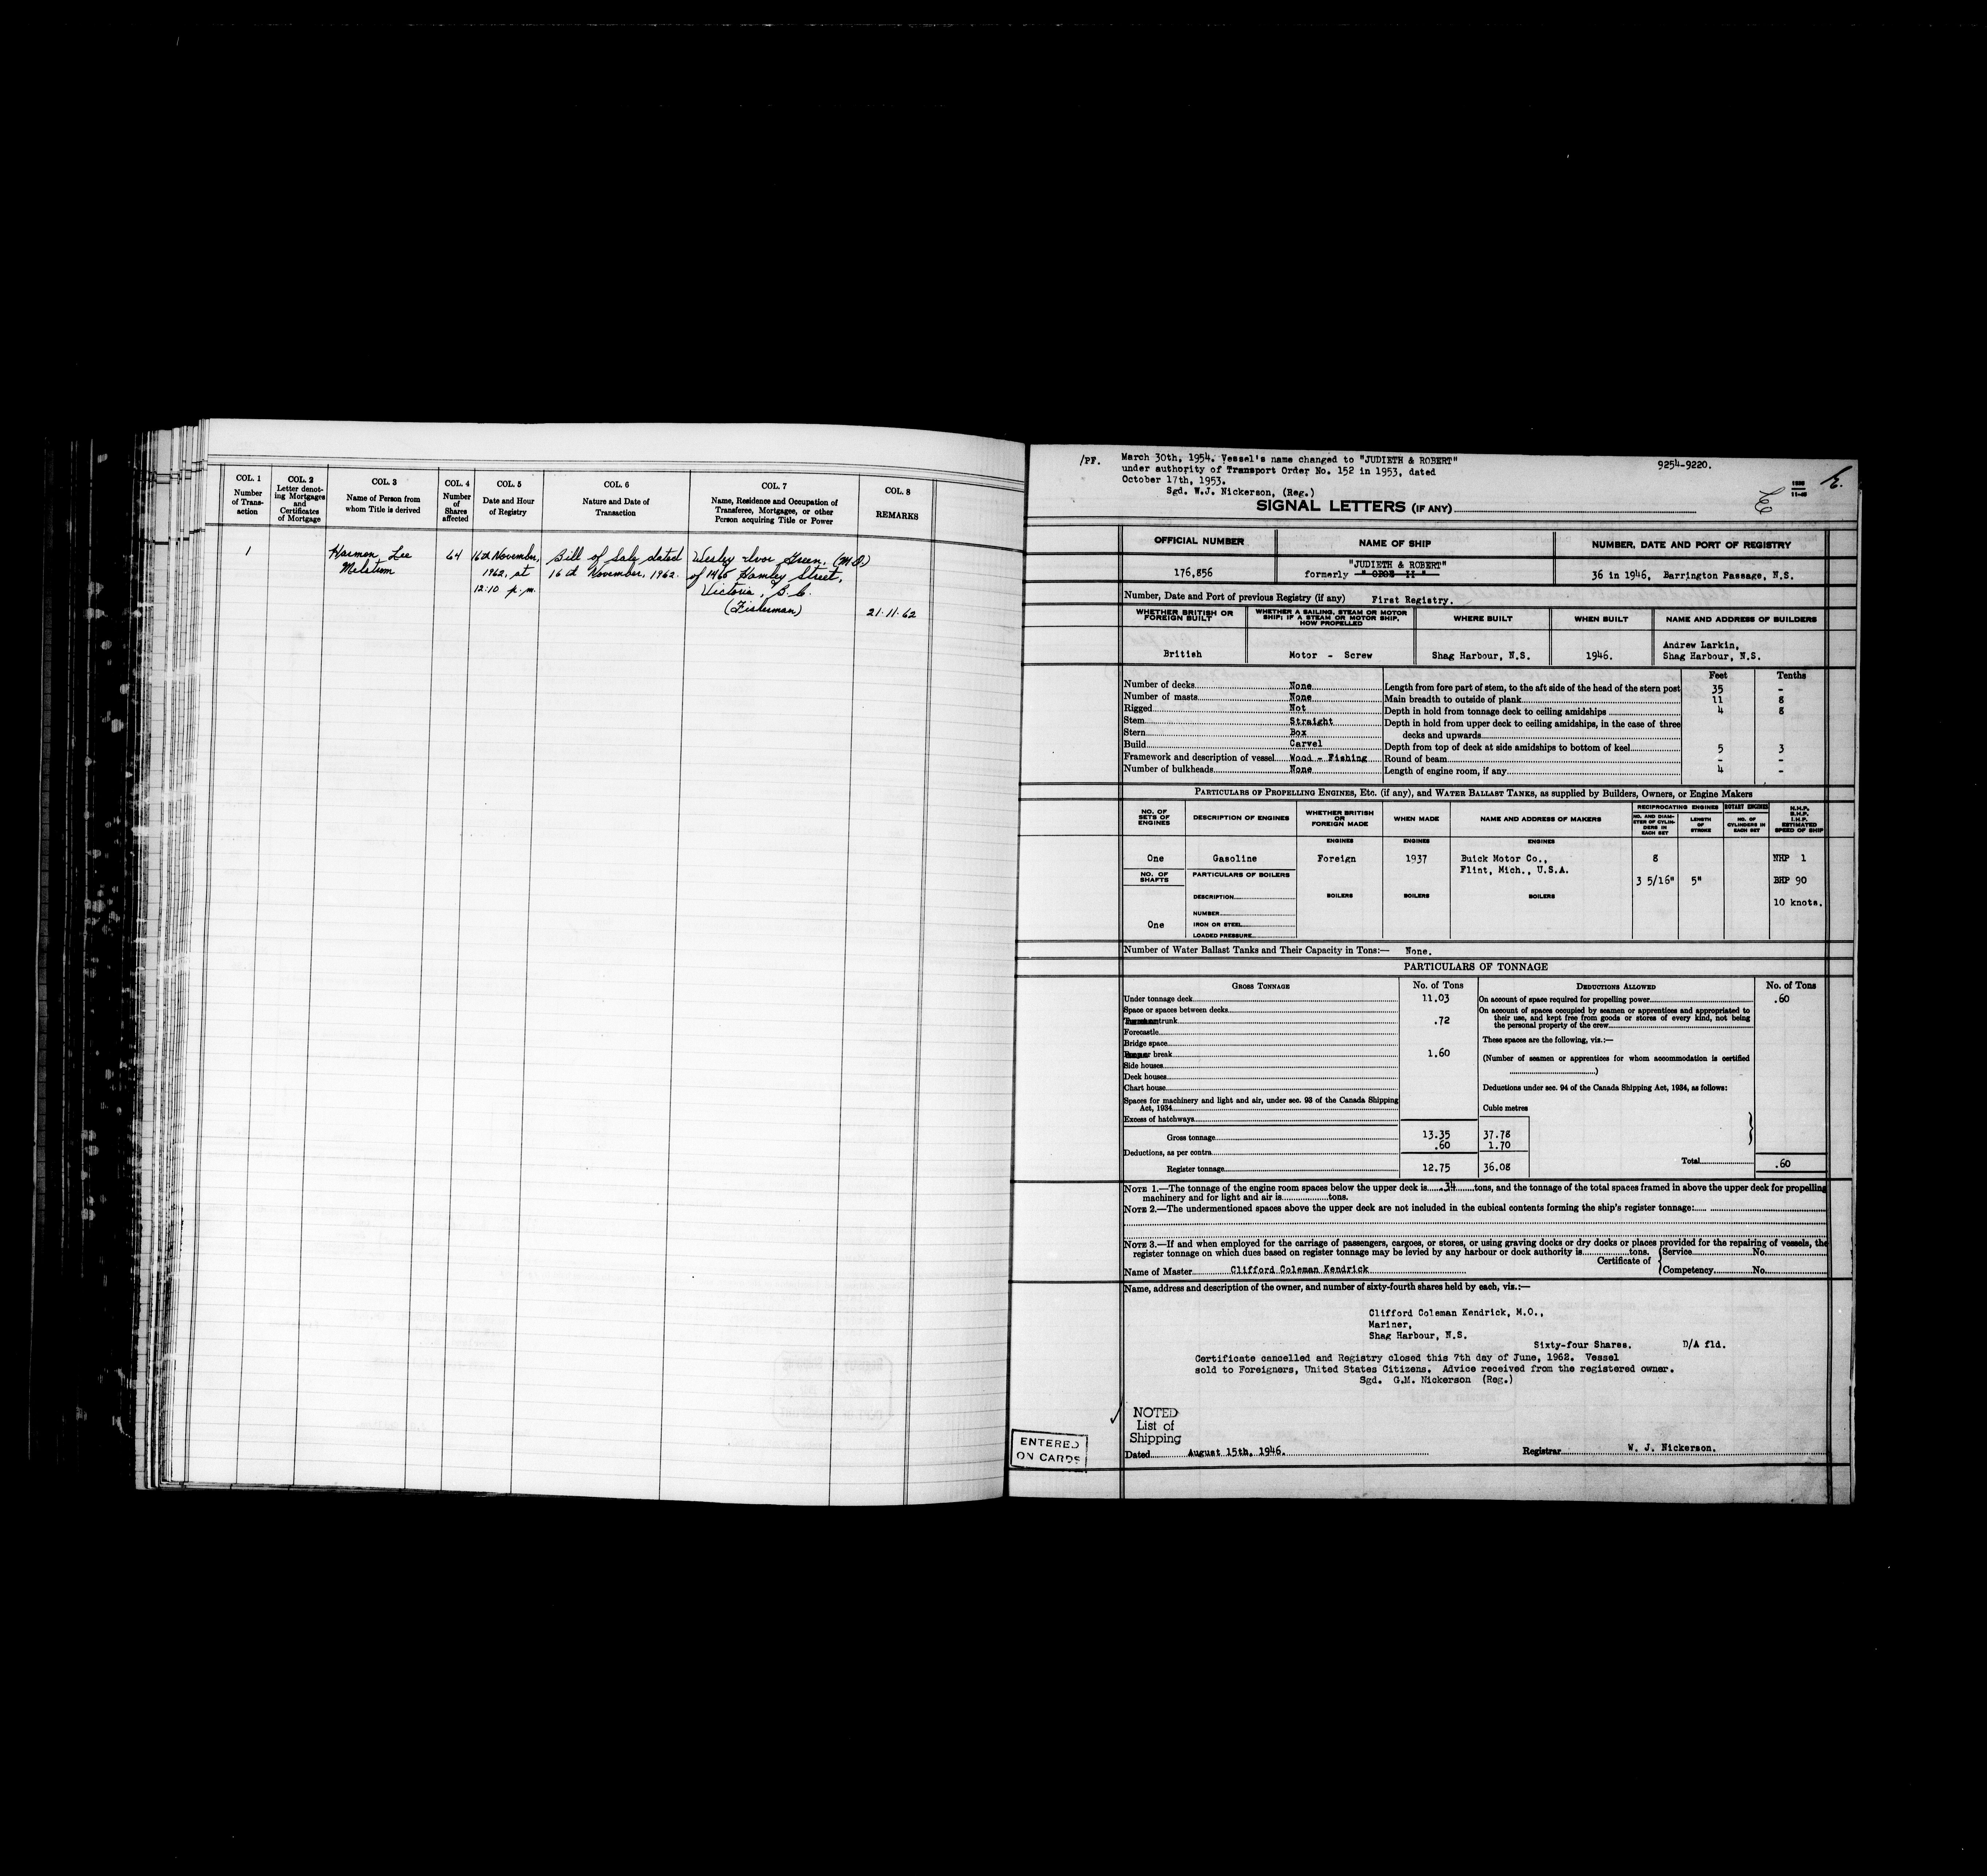 COL. 1 Number of Trans- action
COL. 2 Letter denot- ing Mortgages and Certificates of Mortgage
COL. 3 Name of Person from whom Title is derived
COL. 4 Number of Shares affected
COL. 5 Date and Hour of Registry
COL. 6 Nature and Date of Transaction
COL. 7 Name, Residence and Occupation of Transferee, Mortgagee, or other Person acquiring Title or Power
COL. 8 REMARKS
1 Harmon Lee 64 16th November, Bill of Sale dated Wesley Ivor Green, (M.O.)
1962, at 16th November, 1962. of 1465 Hamley Street,
12:10 p.m. Victoria, B.C.
(Fisherman) 21·11·62
/PF. March 30th, 1954. Vessel's name changed to "JUDIETH & ROBERT" 9254-9220.
under authority of Transport Order No. 152 in 1953, dated
October 17th, 1953.
Sgd. W.J. Nickerson, (Reg.)
SIGNAL LETTERS (IF ANY)
OFFICIAL NUMBER NAME OF SHIP NUMBER, DATE AND PORT OF REGISTRY
"JUDIETH & ROBERT"
176,856 formerly 36 in 1946, Barrington Passage, N.S.
Number, Date and Port of previous Registry (if any) First Registry.
WHETHER BRITISH OR FOREIGN BUILT
WHETHER A SAILING, STEAM OR MOTOR SHIP; IF A STEAM OR MOTOR SHIP, HOW PROPELLED
WHERE BUILT
WHEN BUILT
NAME AND ADDRESS OF BUILDERS
Andrew Larkin,
British Motor - Screw Shag Harbour, N.S. 1946. Shag Harbour, N.S.
Feet Tenths
Number of decks None
Number of masts None
Rigged Not
Stem Straight
Stern Box
Build Carvel
Framework and description of vessel Wood - Fishing
Number of bulkheads None
Length from fore part of stem, to the aft side of the head of the stern post 35 -
Main breadth to outside of plank 11 8
Depth in hold from tonnage deck to ceiling amidships 4 8
Depth in hold from upper deck to ceiling amidships, in the case of three
decks and upwards
Depth from top of deck at side amidships to bottom of keel 5 3
Round of beam - -
Length of engine room, if any 4 -
PARTICULARS OF PROPELLING ENGINES, ETC. (if any), and WATER BALLAST TANKS, as supplied by Builders, Owners, or Engine Makers
NO. OF SETS OF ENGINES
DESCRIPTION OF ENGINES
WHETHER BRITISH OR FOREIGN MADE
WHEN MADE
NAME AND ADDRESS OF MAKERS
RECIPROCATING ENGINES
NO. AND DIAM- ETER OF CYLIN- DERS IN EACH SET
LENGTH OF STROKE
ROTARY ENGINES
NO. OF CYLINDERS IN EACH SET
N.H.P. B.H.P. I.H.P. ESTIMATED SPEED OF SHIP
ENGINES ENGINES ENGINES
One Gasoline Foreign 1937 Buick Motor Co., 8 NHP 1
Flint, Mich., U.S.A.
NO. OF SHAFTS
PARTICULARS OF BOILERS
3 5/16" 5" BHP 90
DESCRIPTION BOILERS BOILERS BOILERS
10 knots.
NUMBER
One IRON OR STEEL
LOADED PRESSURE
Number of Water Ballast Tanks and Their Capacity in Tons:— None.
PARTICULARS OF TONNAGE
GROSS TONNAGE No. of Tons DEDUCTIONS ALLOWED No. of Tons
Under tonnage deck 11.03
Space or spaces between decks
trunk .72
Forecastle
Bridge space
or break 1.60
Side houses
Deck houses
Chart house
Spaces for machinery and light and air, under sec. 93 of the Canada Shipping
Act, 1934
Excess of hatchways
Cubic metres
Gross tonnage 13.35 37.78
Deductions, as per contra .60 1.70
Register tonnage 12.75 36.08
On account of space required for propelling power .60
On account of spaces occupied by seamen or apprentices and appropriated to
their use, and kept free from goods or stores of every kind, not being
the personal property of the crew
These spaces are the following, viz.:—
(Number of seamen or apprentices for whom accommodation is certified
)
Deductions under sec. 94 of the Canada Shipping Act, 1934, as follows:
Total .60
NOTE 1.—The tonnage of the engine room spaces below the upper deck is .34 tons, and the tonnage of the total spaces framed in above the upper deck for propelling
machinery and for light and air is tons.
NOTE 2.—The undermentioned spaces above the upper deck are not included in the cubical contents forming the ship's register tonnage:
NOTE 3.—If and when employed for the carriage of passengers, cargoes, or stores, or using graving docks or dry docks or places provided for the repairing of vessels, the
register tonnage on which dues based on register tonnage may be levied by any harbour or dock authority is tons.
Certificate of { Service No.
Competency No.
Name of Master Clifford Coleman Kendrick
Name, address and description of the owner, and number of sixty-fourth shares held by each, viz.:—
Clifford Coleman Kendrick, M.O.,
Mariner,
Shag Harbour, N.S.
Sixty-four Shares. D/A fld.
Certificate cancelled and Registry closed this 7th day of June, 1962. Vessel
sold to Foreigners, United States Citizens. Advice received from the registered owner.
Sgd. G.M. Nickerson (Reg.)
NOTED
List of
Shipping
ENTERED
ON CARDS
Dated August 15th, 1946. Registrar W. J. Nickerson.